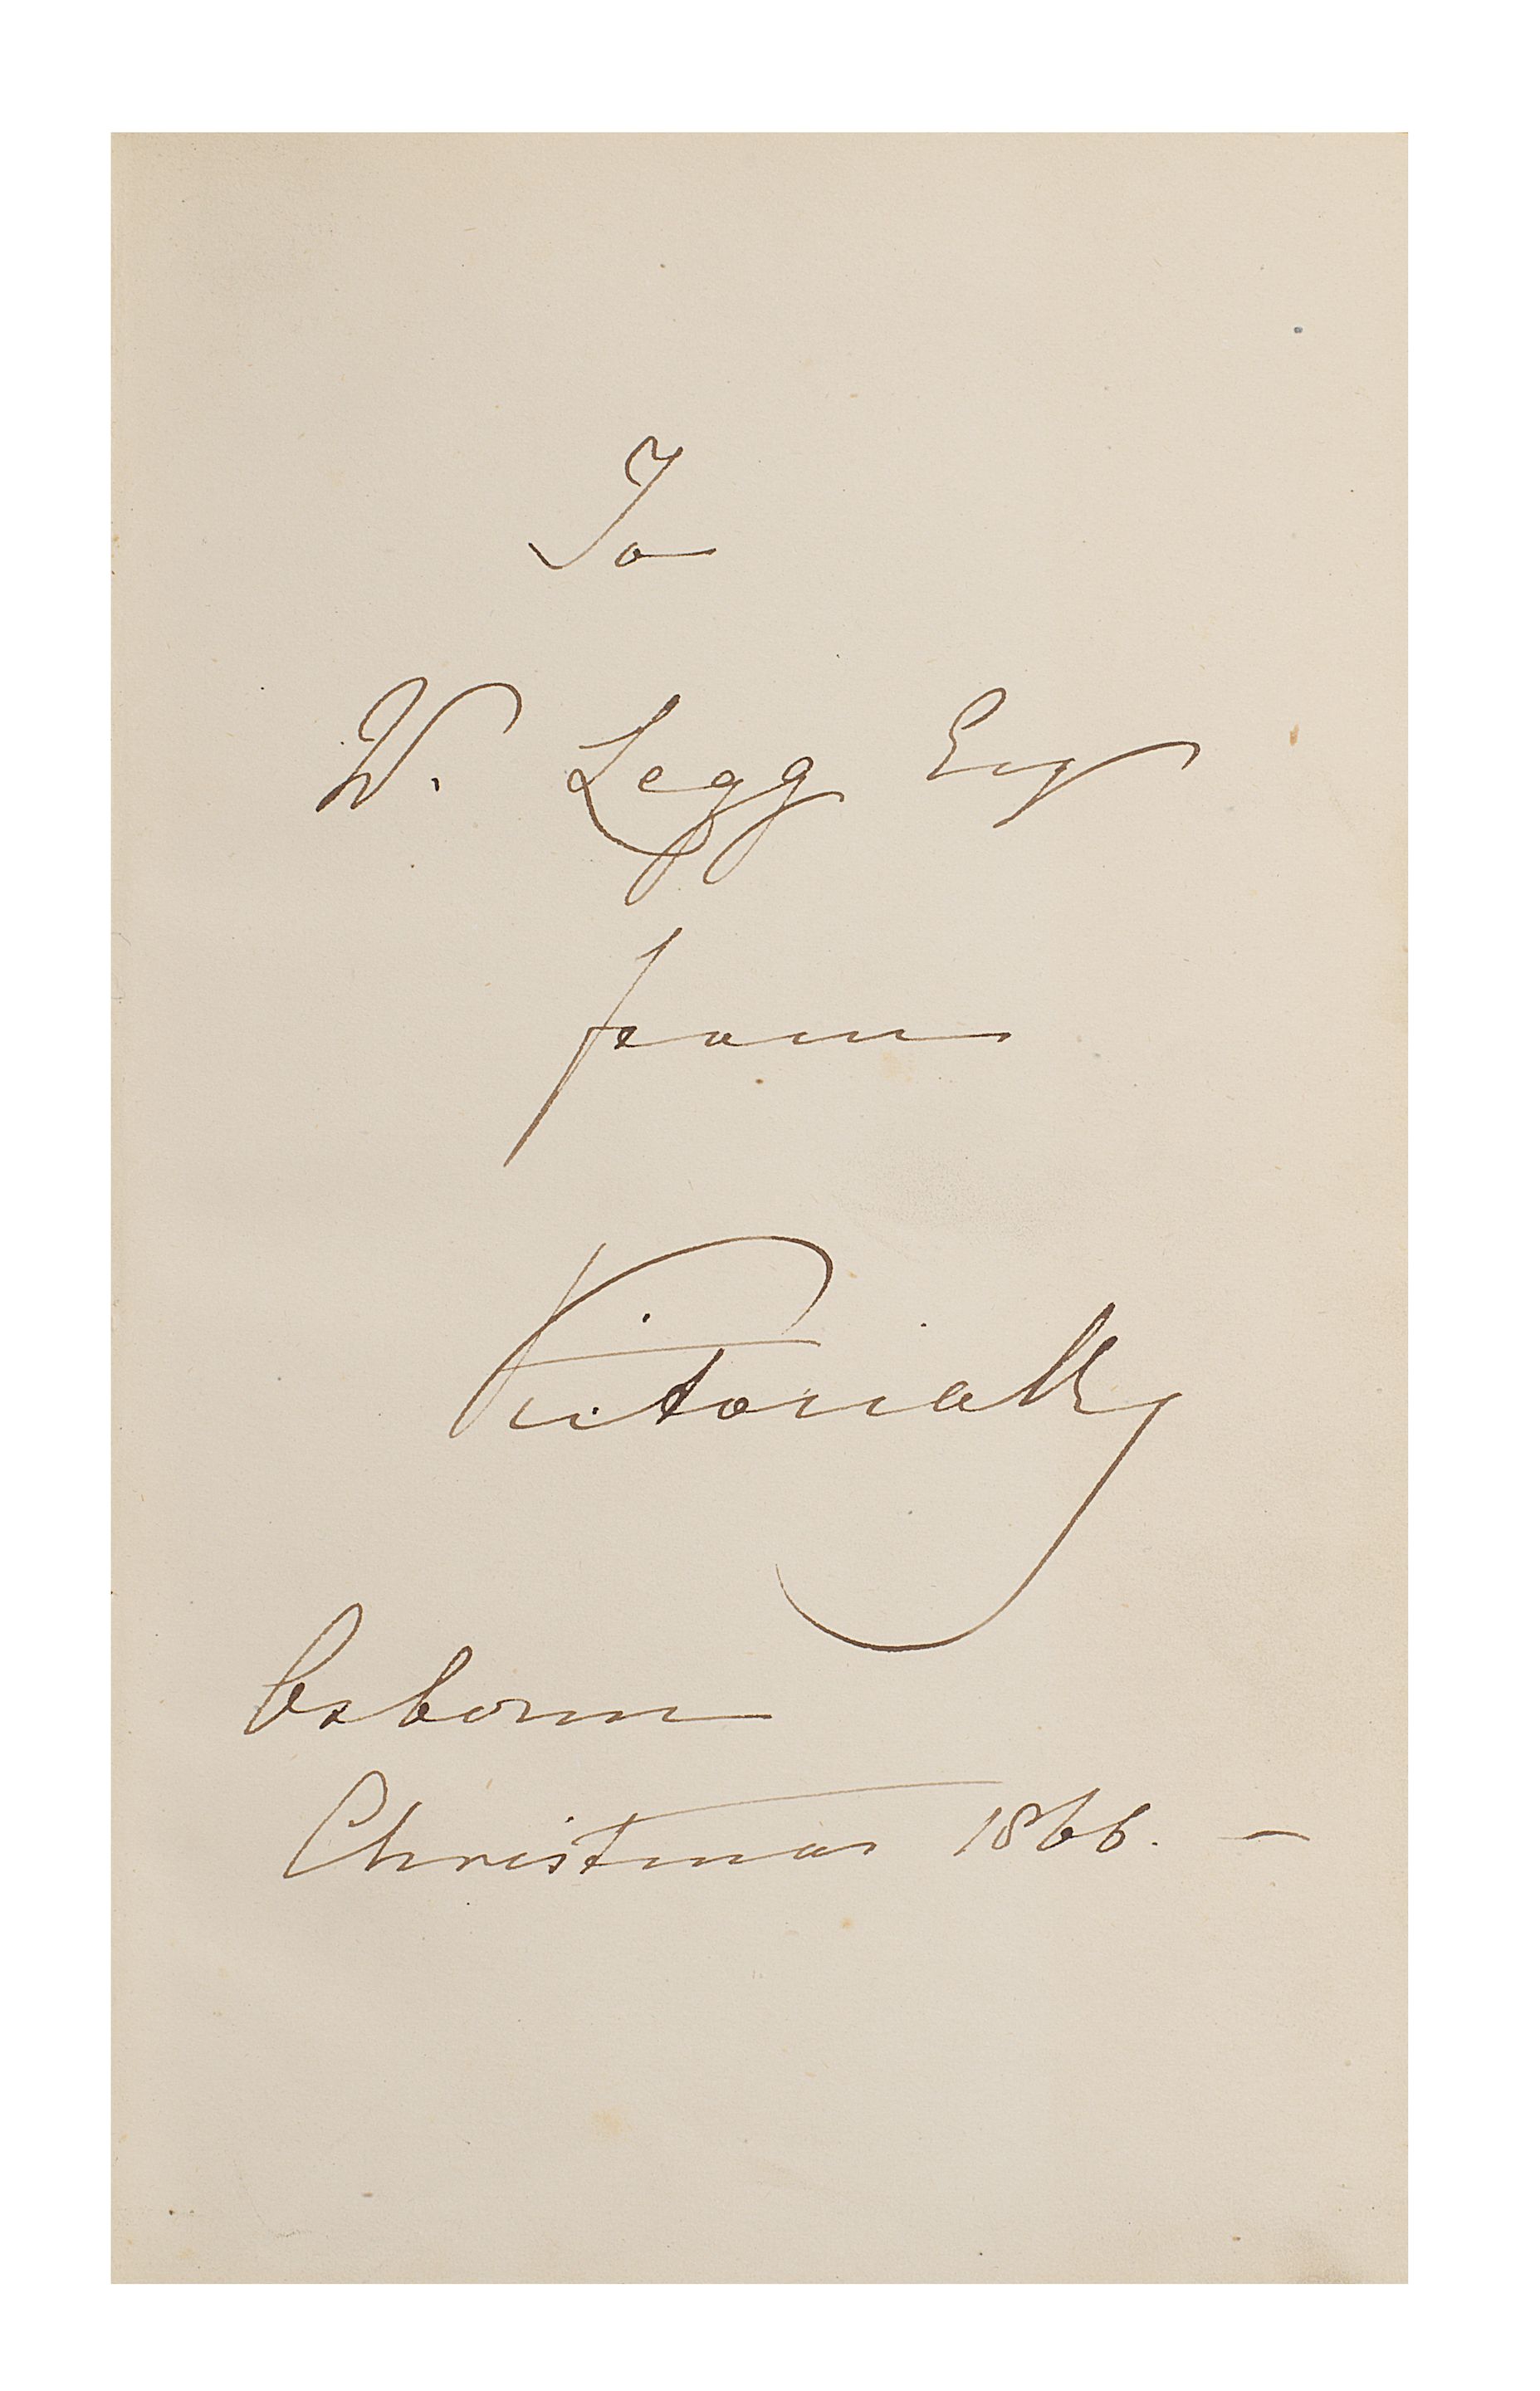 To
W. Legg Esq
from
Victoria R
Osborne
Christmas 1866. —